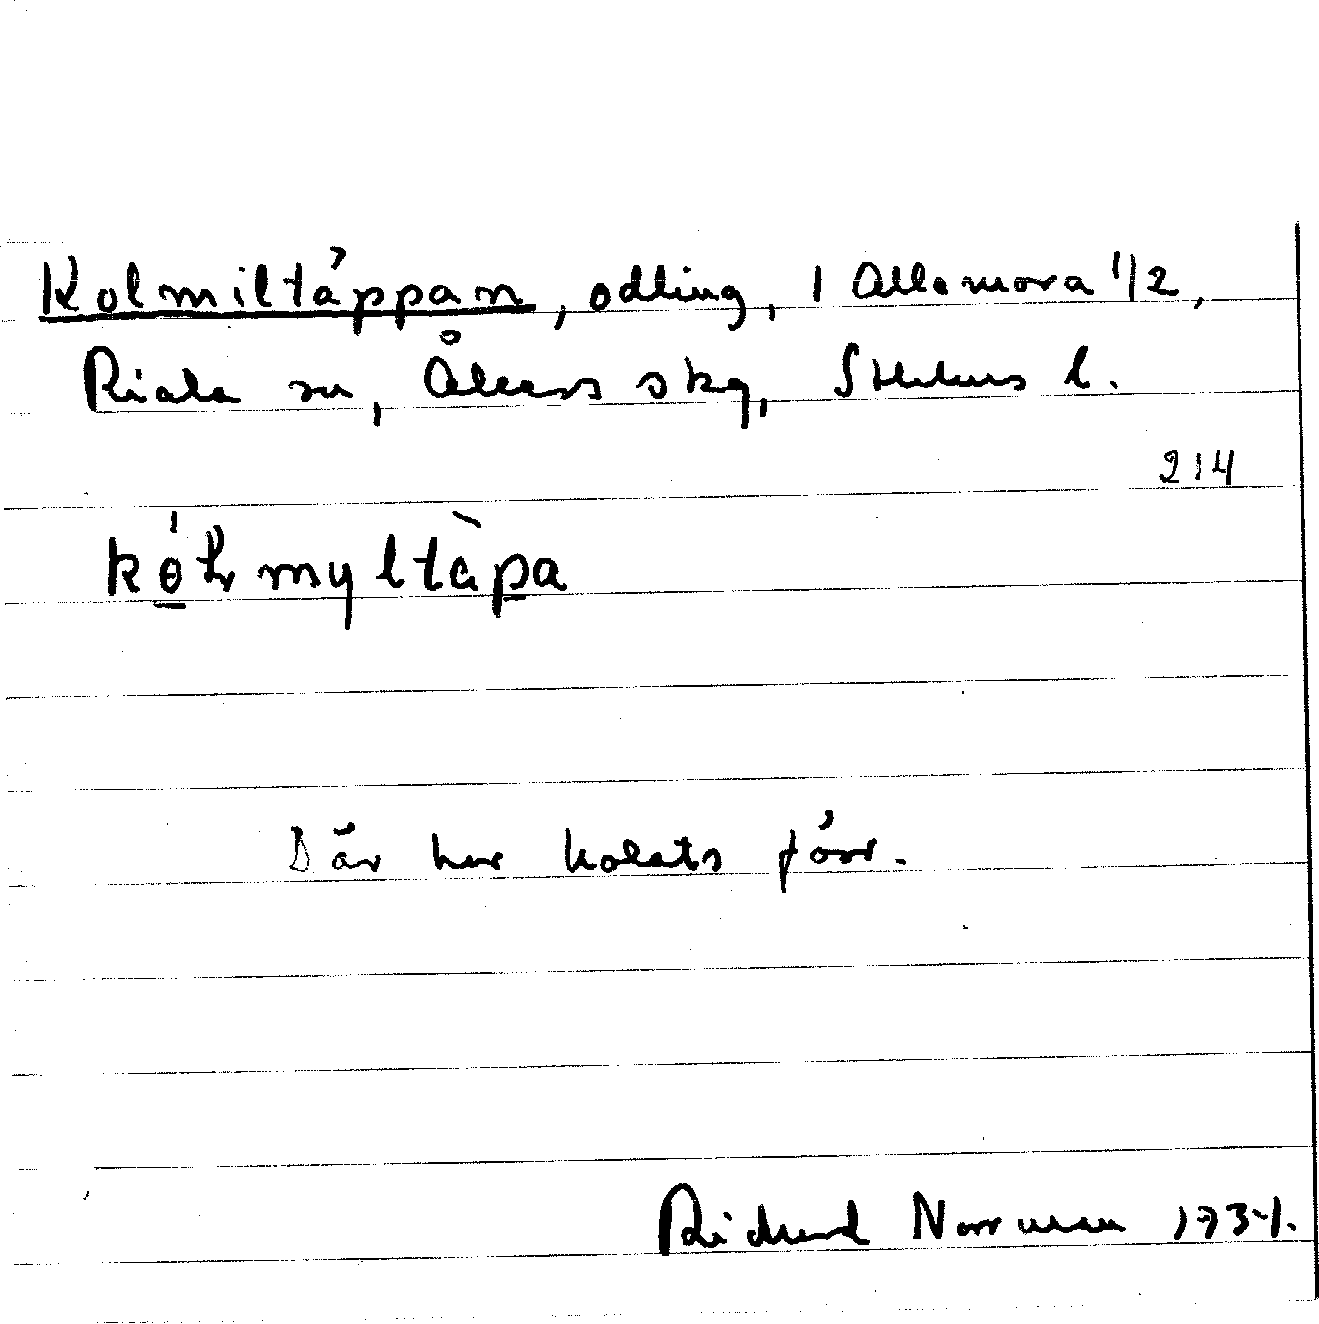 Kolmiltäppan, odling, 1 Allamora 1/2,
Riala sn, Åkers skg, Sthlms l.
214
Där har kolats förr.
Richard Norrman